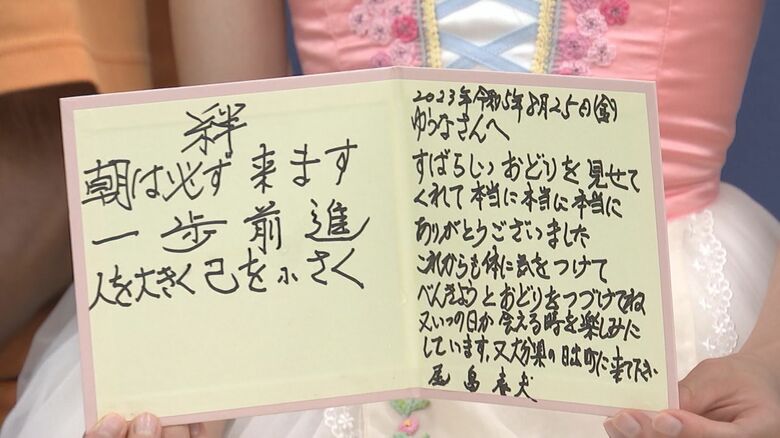 絆
朝は必ず来ます
一歩前進
人を大きく己を小さく
2023年令和5年8月25日(金)
ゆうなさんへ
すばらしいおどりを見せて
くれて本当に本当に本当に
ありがとうございました
これからも体に気をつけて
べんきょうとおどりをつづけてね
又いつの日か会える時を楽しみに
しています。又大分県の日出町に来て下さい
尾畠春夫